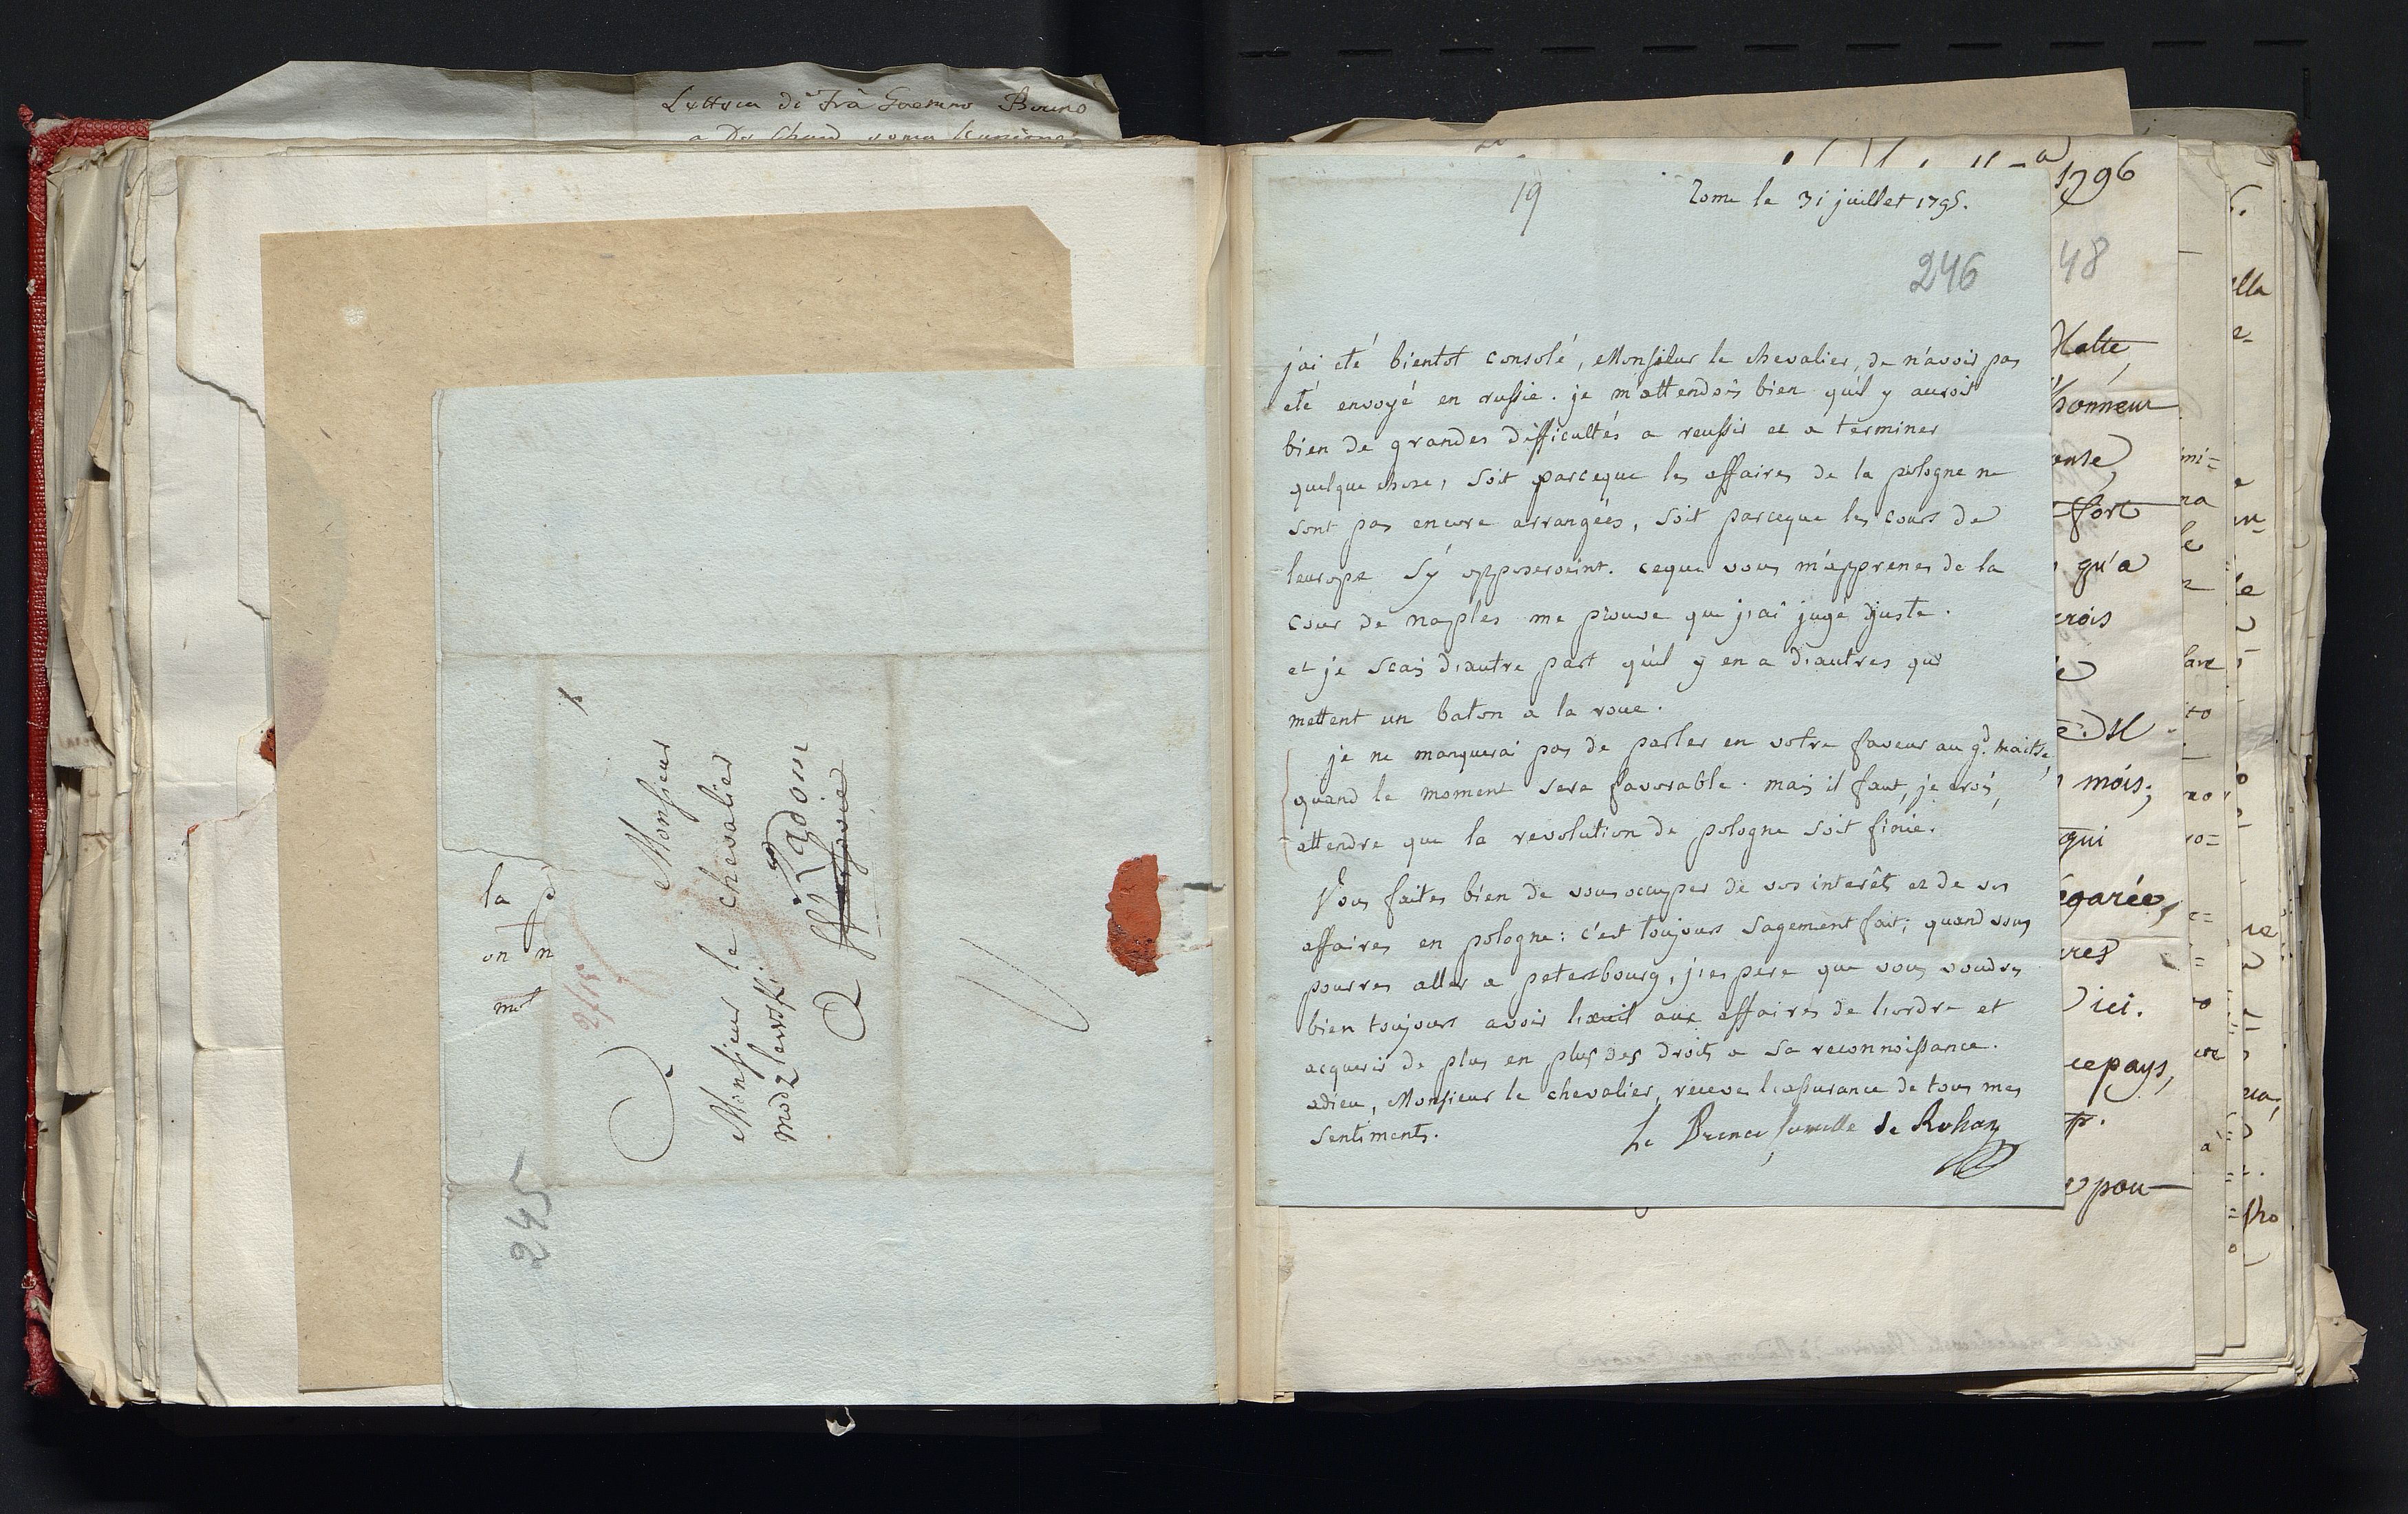 Lettera di Frà Gaetano Bruno
245
la
on n
mot
2/15
a
Monsieur
Monsieur le chevalier
modzlewski
a Radom
19
Rome le 31 juillet 1795.
246
j'ai eté bientot consolé, Monsieur le chevalier, de n'avoir pas
eté envoyé en russie. je m'attendois bien qu'il y auroit
bien de grandes difficultés a reussir et a terminer
quelque chose, soit parceque les affaires de la pologne ne
sont pas encore arrangées, soit parceque les cours de
leurope s'y opposeroient. ceque vous m'apprenes de la
cour de naples me prouve que j'ai jugé juste.
et je scais d'autre part qu'il y en a d'autres qui
mettent un baton a la roue.
je ne manquerai pas de parler en votre faveur au gd. maitre,
quand le moment sera favorable. mais il faut, je crois,
attendre que la revolution de pologne soit finie.
Vous faites bien de vous occuper de vos interêts et de vos
affaires en pologne: c'est toujours sagement fait; quand vous
pourres aller a petersbourg, j'espere que vous voudres
bien toujours avoir l'oeuil aux affaires de l'ordre et
acquerir de plus en plus des droits a sa reconnoissance.
adieu, Monsieur le chevalier, receves l'assurance de tous mes
sentiments.
Le Prince Camille de Rohan
1796
48
Malte,
l'honneur
fort
qu'a
mois;
qui
egarée,
ici.
ce pays,
pou